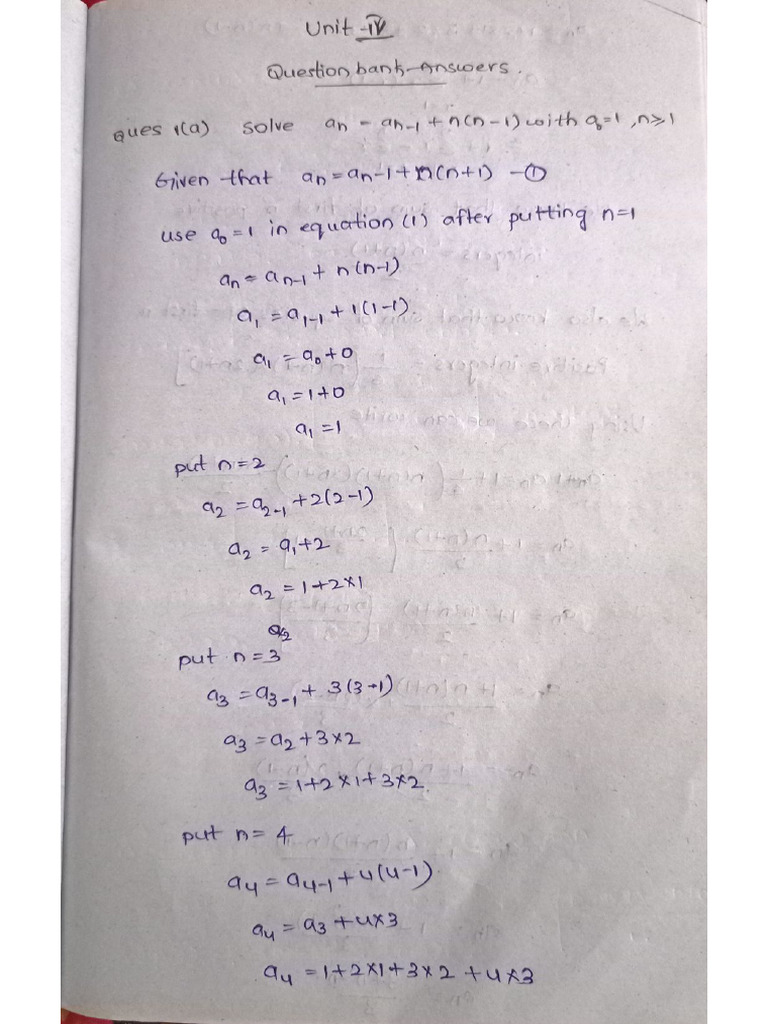 Unit -IV
Question bank-Answers.
Ques 1(a) solve aₙ = aₙ₋₁ + n(n-1) with a₀=1, n≥1
Given that aₙ=aₙ-1+n(n+1) -①
use a₀=1 in equation (1) after putting n=1
aₙ = aₙ₋₁ + n(n-1)
a₁ = a₁₋₁ + 1(1-1)
a₁ = a₀+0
a₁ = 1+0
a₁ =1
put n=2
a₂ = a₂₋₁ +2(2-1)
a₂ = a₁+2
a₂ = 1+2×1
a₂
put n=3
a₃ = a₃₋₁ + 3(3-1)
a₃ = a₂+3×2
a₃ = 1+2×1+3×2.
put n= 4
a₄ = a₄₋₁ +4(4-1)
a₄ = a₃ +4×3
a₄ = 1+2×1+3×2 +4×3